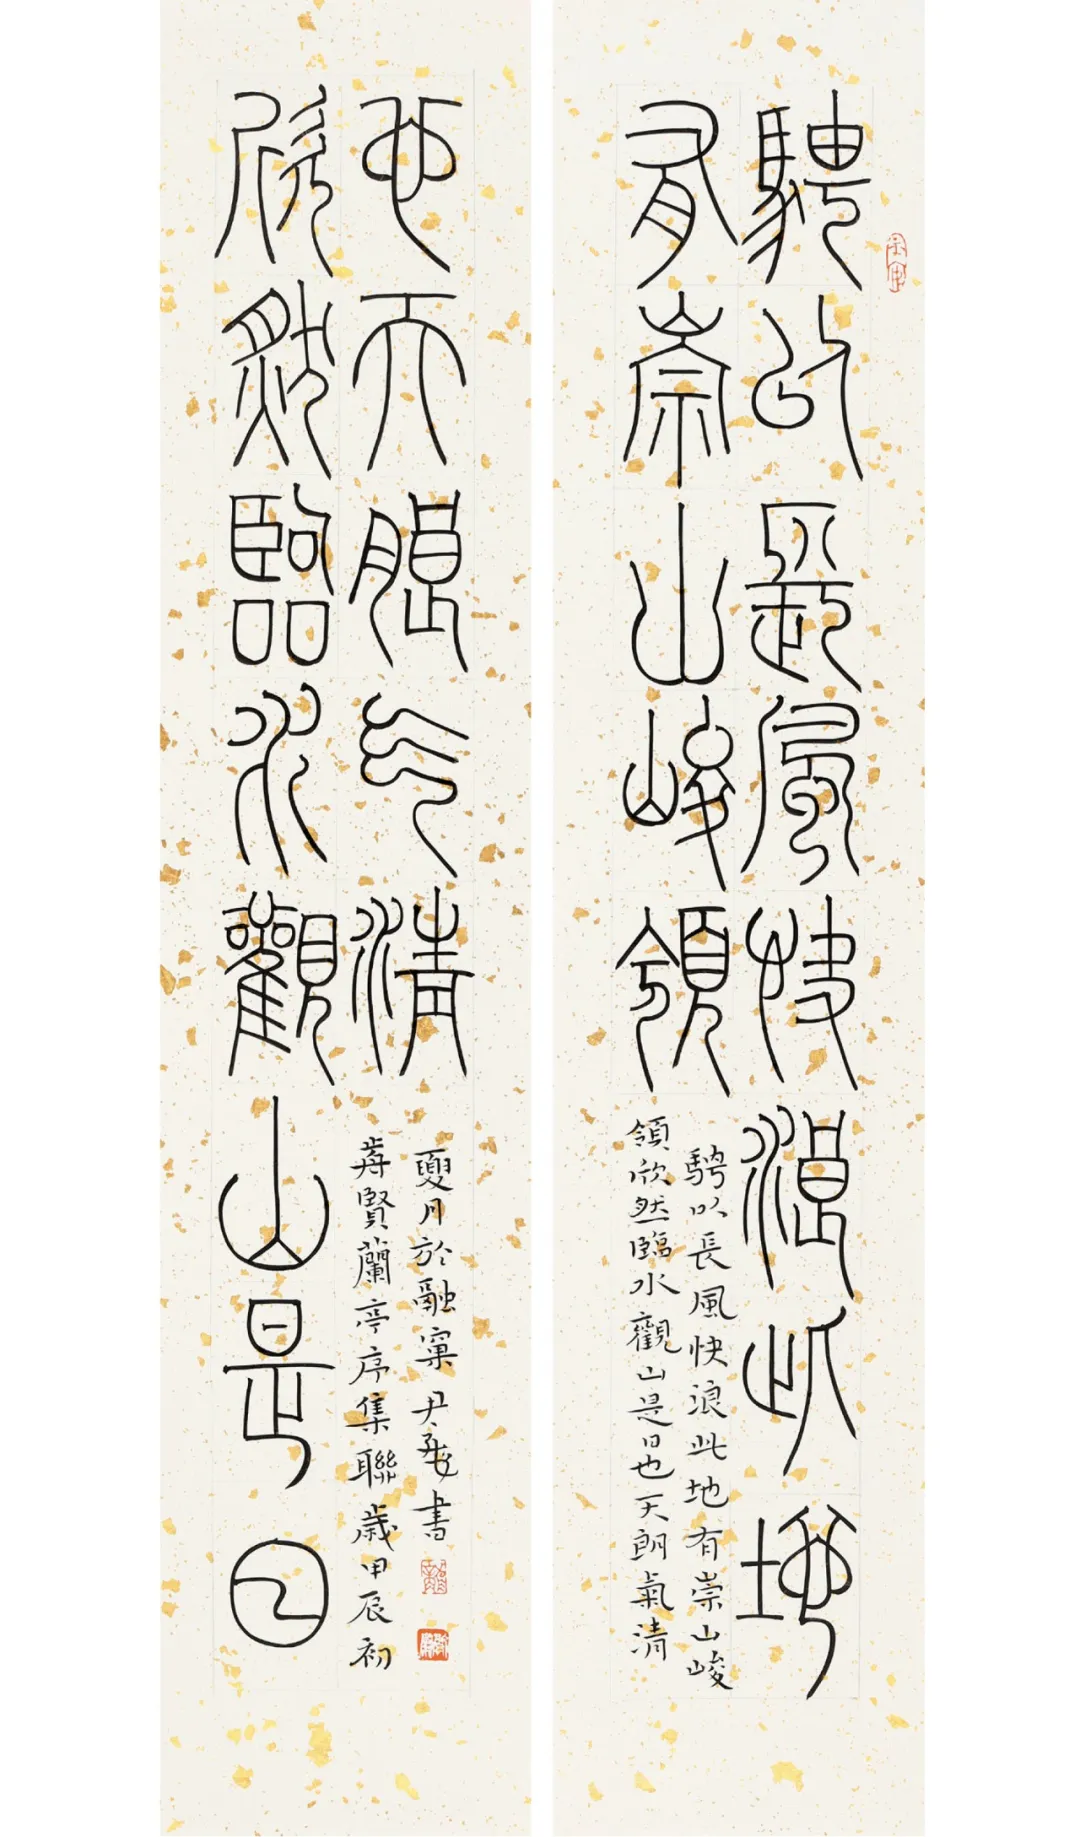 騁以長風快浪此地
有崇山峻領
騁以長風快浪此地有崇山峻
領欣然臨水觀山是日也天朗氣清
欣然臨水觀山是日
也天朗氣清
賢蘭亭序集聯歲甲辰初
夏月於融窠尹書